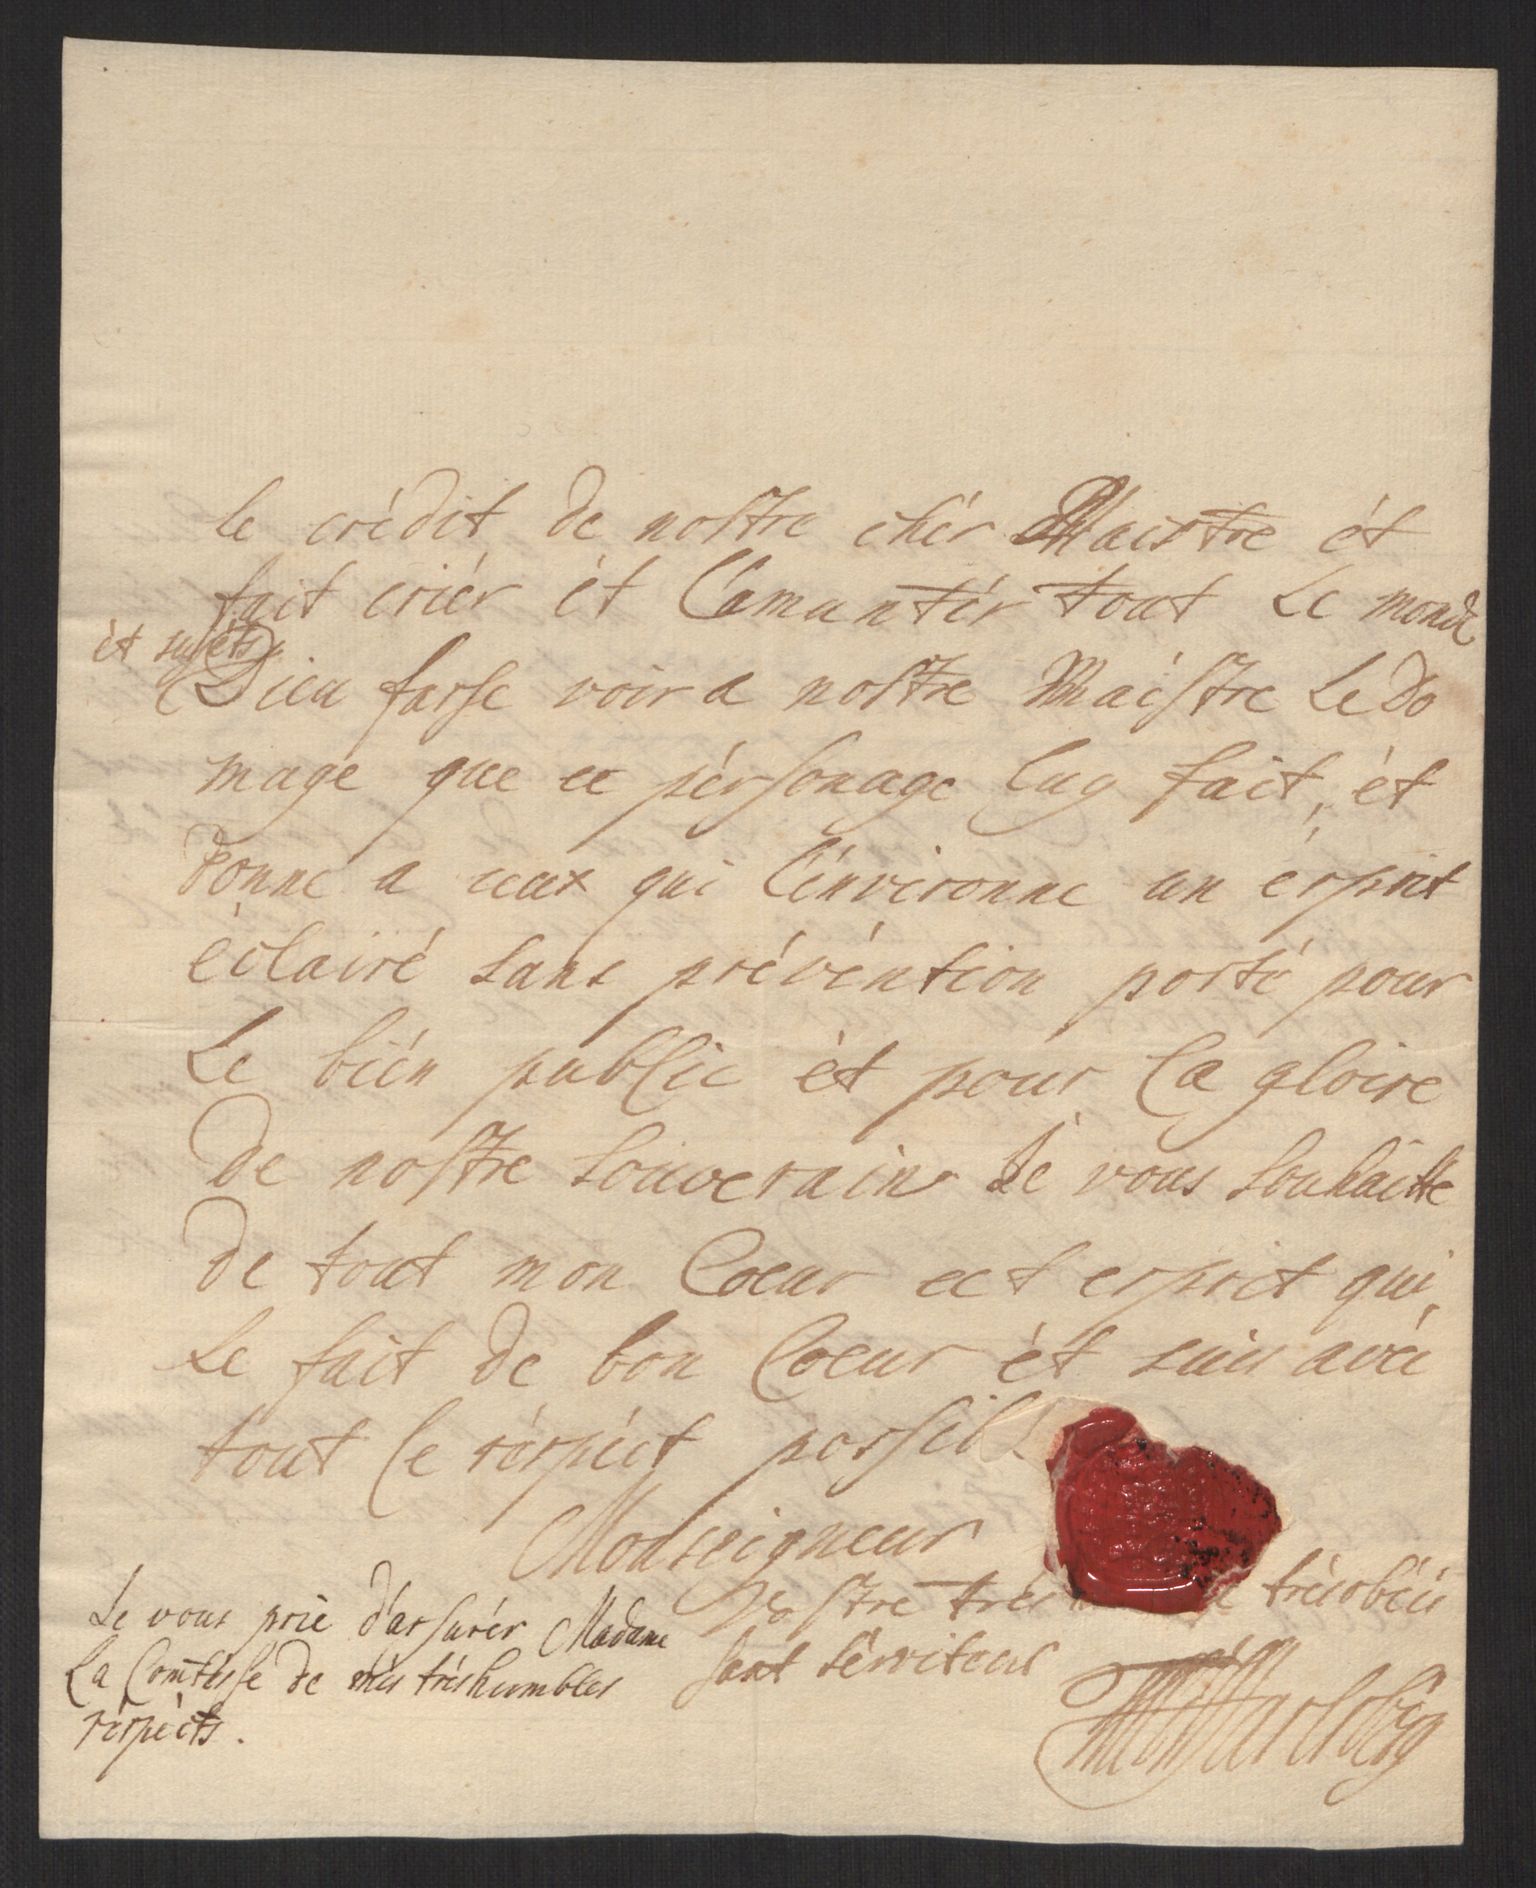 le crédit de nostre chér Maistre ét
fait criér ét lamantér tout Le monde
ét sujéts
Dieu fasse voir a nostre Maistre Le Do
mage que ce pérsonage luy fait, ét
Donne a ceux qui l'énvironne un ésprit
éclairé sans prévéntion porté pour
Le bién public ét pour la gloire
De nostre souverain Je vous souhaitte
De tout mon Coeur cet esprit qui
Le fait de bon Coeur ét suis avéc
tout le réspéct possibl
Monseigneur
Vostre trés trésobéis
sant sérviteur
Je vous prie d'assurér Madame
La Comtésse de més tréshumbles
réspécts.